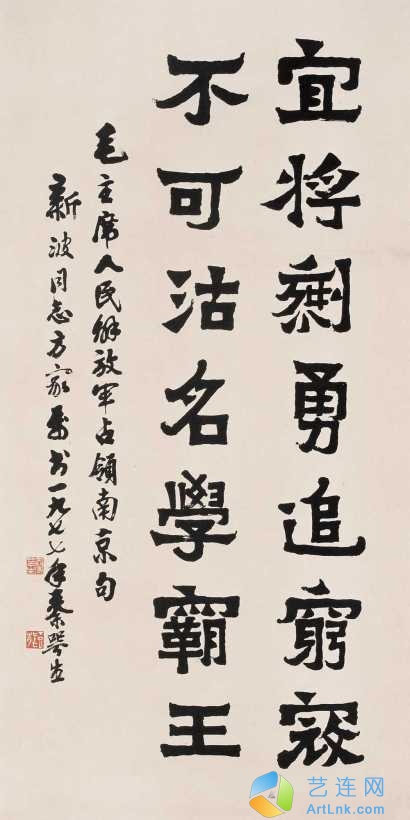 宜将剩勇追窮寇
不可沽名學霸王
毛主席人民解放军占领南京句
新波同志方家属书一九七七年秦咢生
艺连网
ArtLnk.com